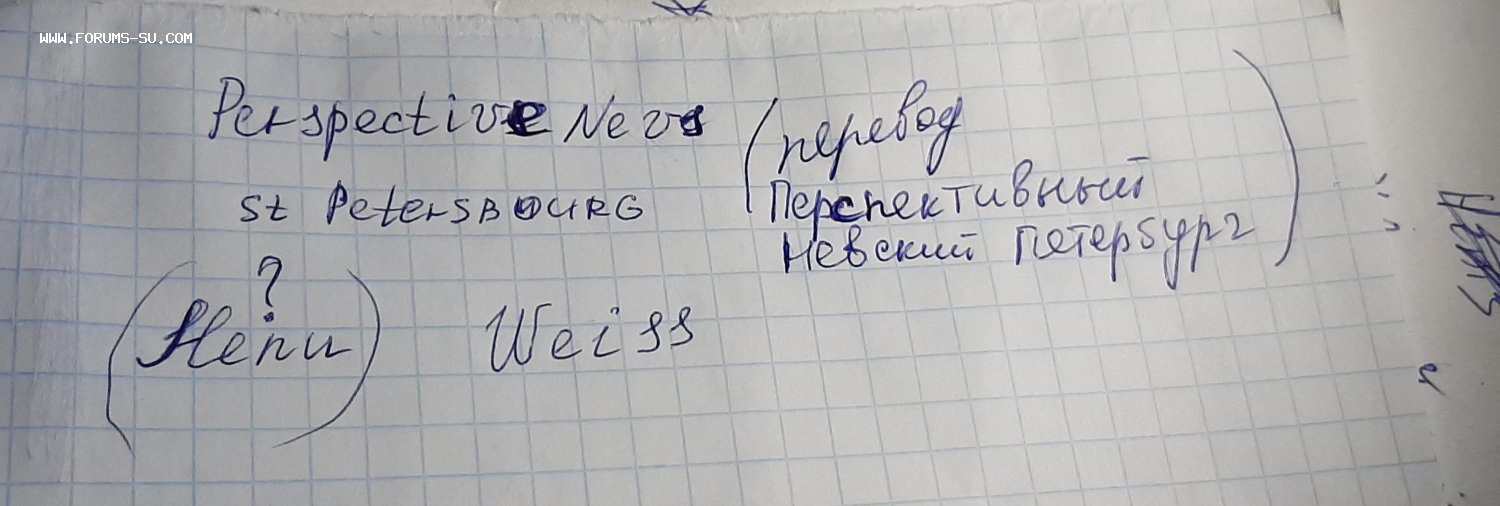 WWW.FORUMS-SU.COM
Perspective Nevs (перевод
st PetersBOURG Перспективный
Невский Петербург)
?
(Henu) Weiss